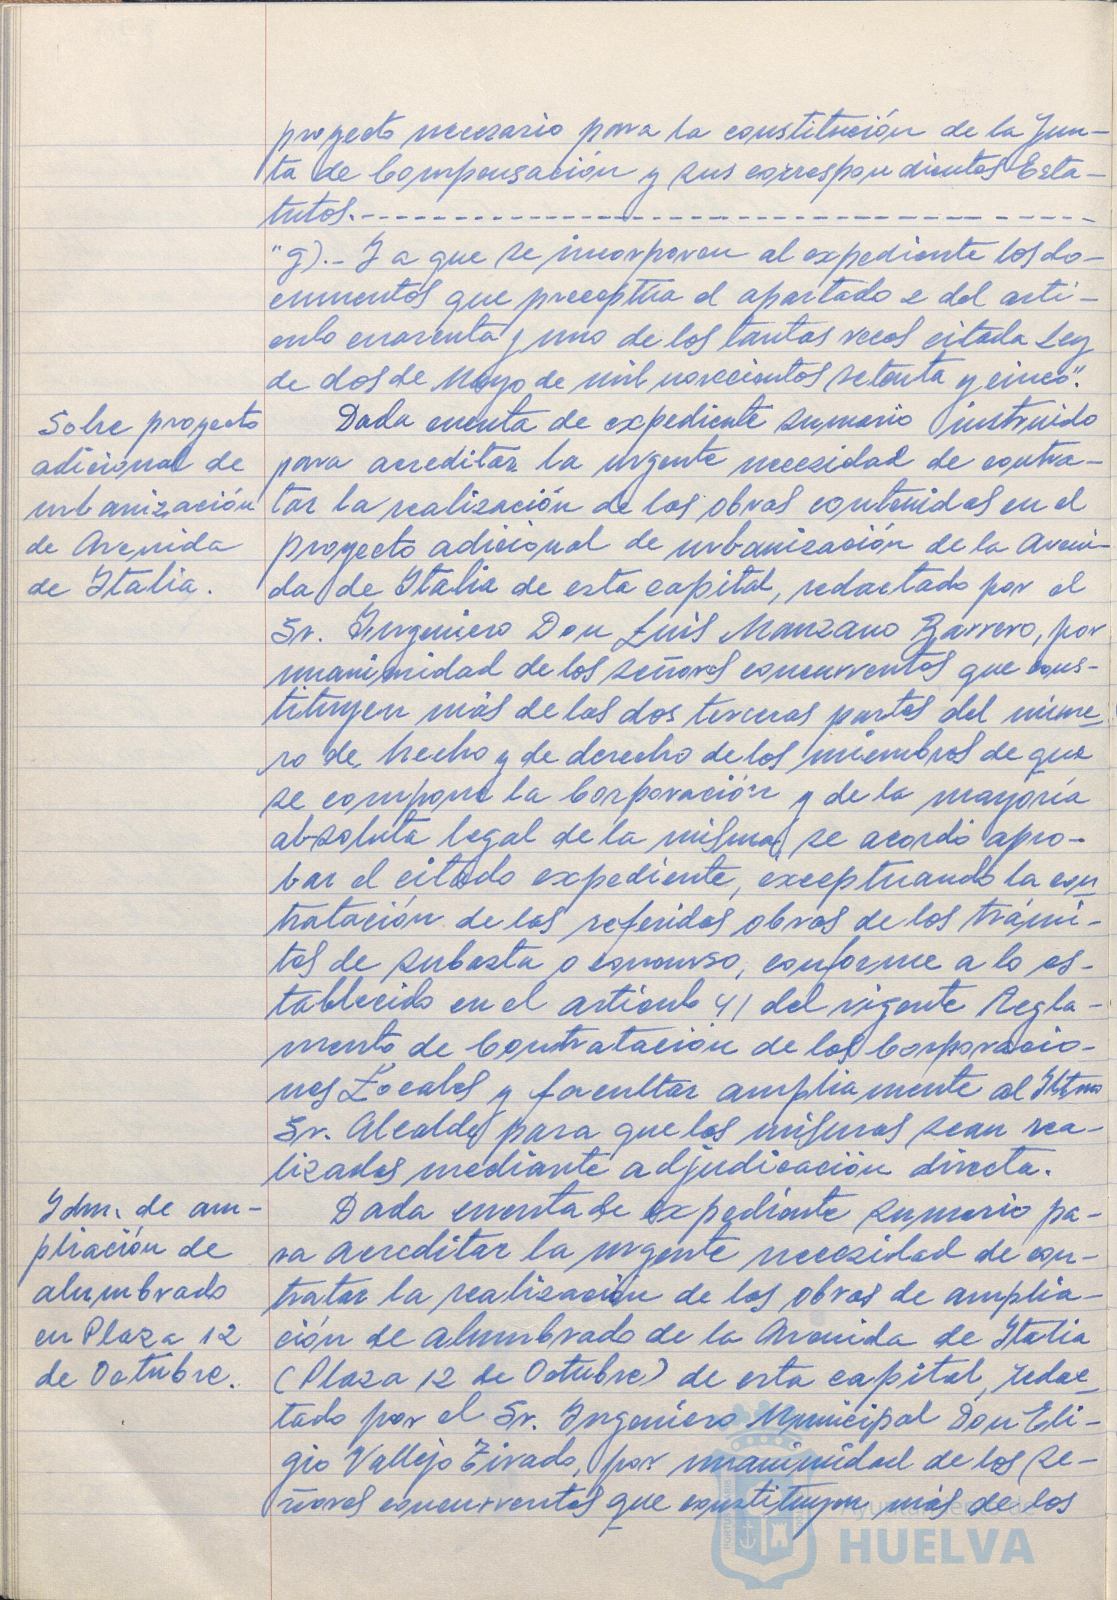 proyecto necesario para la constitución de la Jun-
ta de Compensación y sus correspondientes Esta-
tutos.-
"g).- Y a que se incorporen al expediente los do-
cumentos que preceptúa el apartado e del artí-
culo cuarenta y uno de los tantas veces citada Ley
de dos de Mayo de mil novecientos setenta y cinco".
Sobre proyecto
adicional de
urbanización
de Avenida
de Italia.
Dada cuenta de expediente sumario instruido
para acreditar la urgente necesidad de contra-
tar la realización de las obras contenidas en el
proyecto adicional de urbanización de la Aveni-
da de Italia de esta capital, redactado por el
Sr. Ingeniero Don Luis Manzano Barrero, por
unanimidad de los señores concurrentes que cons-
tituyen más de las dos terceras partes del núme-
ro de hecho y de derecho de los miembros de que
se compone la Corporación y de la mayoría
absoluta legal de la misma, se acordó apro-
bar el citado expediente, exceptuando la con
tratación de las referidas obras de los trámi-
tes de subasta o concurso, conforme a lo es-
tablecido en el artículo 41 del vigente Regla-
mento de Contratación de las Corporacio-
nes Locales y facultar ampliamente al Iltmo
Sr. Alcalde para que las mismas sean rea-
lizadas mediante adjudicación directa.
Idm. de am-
pliación de
alumbrado
en Plaza 12
de Octubre.
Dada cuenta de expediente sumario pa-
ra acreditar la urgente necesidad de con-
tratar la realización de las obras de amplia-
ción de alumbrado de la Avenida de Italia
(Plaza 12 de Octubre) de esta capital, redac-
tado por el Sr. Ingeniero Municipal Don Eli-
gio Vallejo Tirado, por unanimidad de los se-
ñores concurrentes que constituyen más de las
Ayuntamiento de
HUELVA